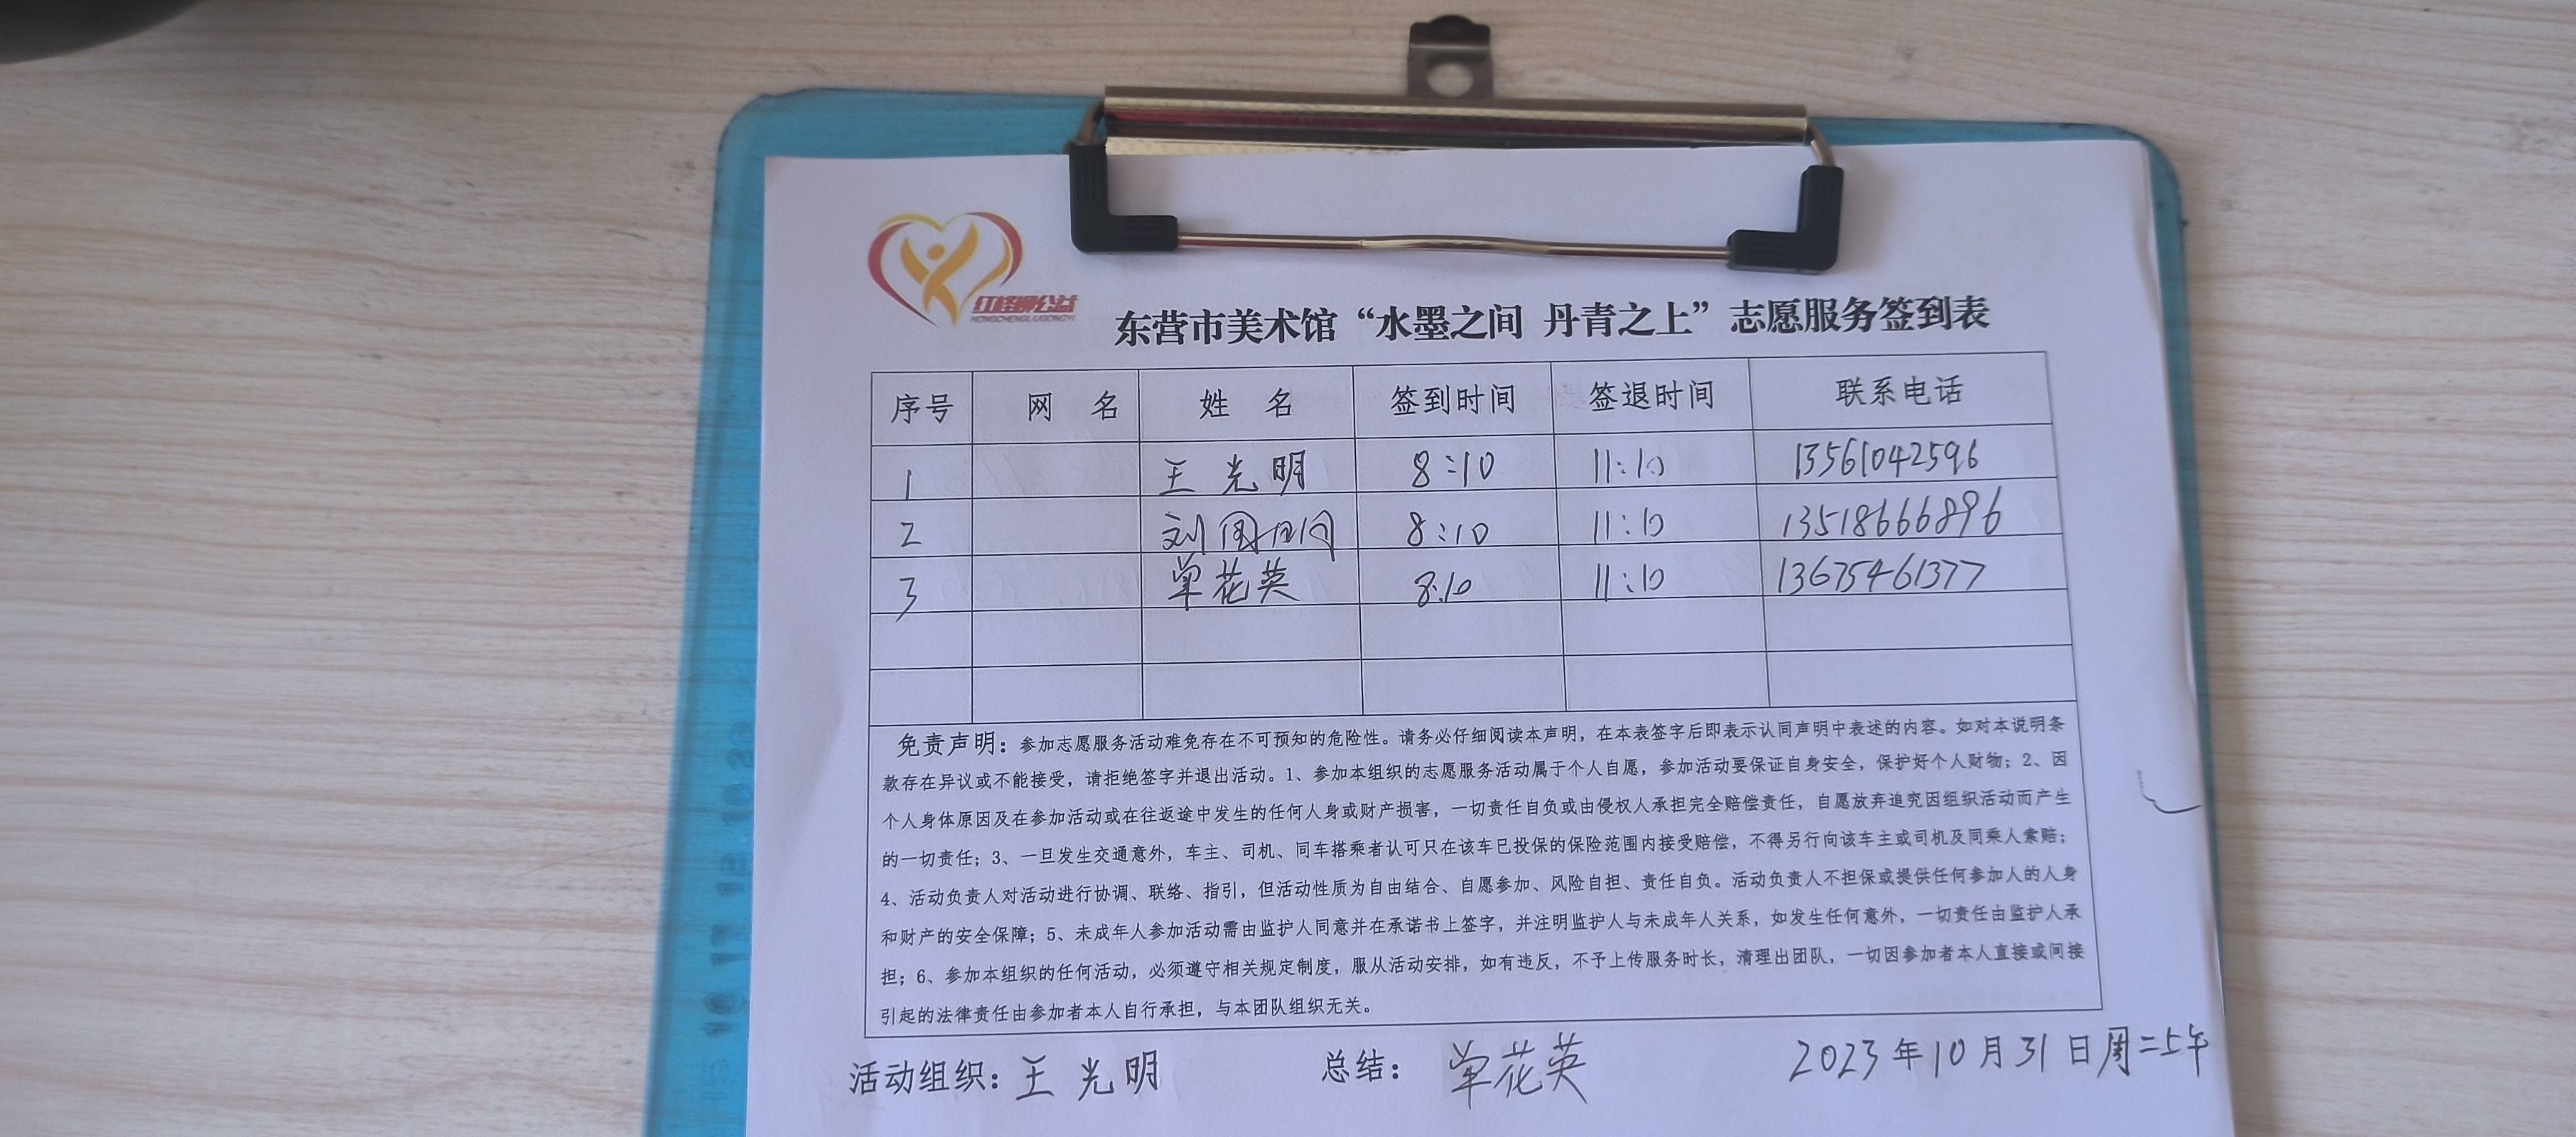 红柽柳公益
HONGCHENGLIUGONGYI
东营市美术馆“水墨之间 丹青之上”志愿服务签到表
序号 网 名 姓 名 签到时间 签退时间 联系电话
1 王光明 8:10 11:10 13561042596
2 刘国 8:10 11:10 13518666896
3 单花英 8:10 11:10 13675461377
免责声明：参加志愿服务活动难免存在不可预知的危险性。请务必仔细阅读本声明，在本表签字后即表示认同声明中表述的内容。如对本说明条
款存在异议或不能接受，请拒绝签字并退出活动。1、参加本组织的志愿服务活动属于个人自愿，参加活动要保证自身安全，保护好个人财物；2、因
个人身体原因及在参加活动或在往返途中发生的任何人身或财产损害，一切责任自负或由侵权人承担完全赔偿责任，自愿放弃追究因组织活动而产生
的一切责任；3、一旦发生交通意外，车主、司机、同车搭乘者认可只在该车已投保的保险范围内接受赔偿，不得另行向该车主或司机及同乘人索赔；
4、活动负责人对活动进行协调、联络、指引，但活动性质为自由结合、自愿参加、风险自担、责任自负。活动负责人不担保或提供任何参加人的人身
和财产的安全保障；5、未成年人参加活动需由监护人同意并在承诺书上签字，并注明监护人与未成年人关系，如发生任何意外，一切责任由监护人承
担；6、参加本组织的任何活动，必须遵守相关规定制度，服从活动安排，如有违反，不予上传服务时长，清理出团队，一切因参加者本人直接或间接
引起的法律责任由参加者本人自行承担，与本团队组织无关。
活动组织：王光明 总结：单花英 2023年10月31日周二上午
16 17 18 19 20